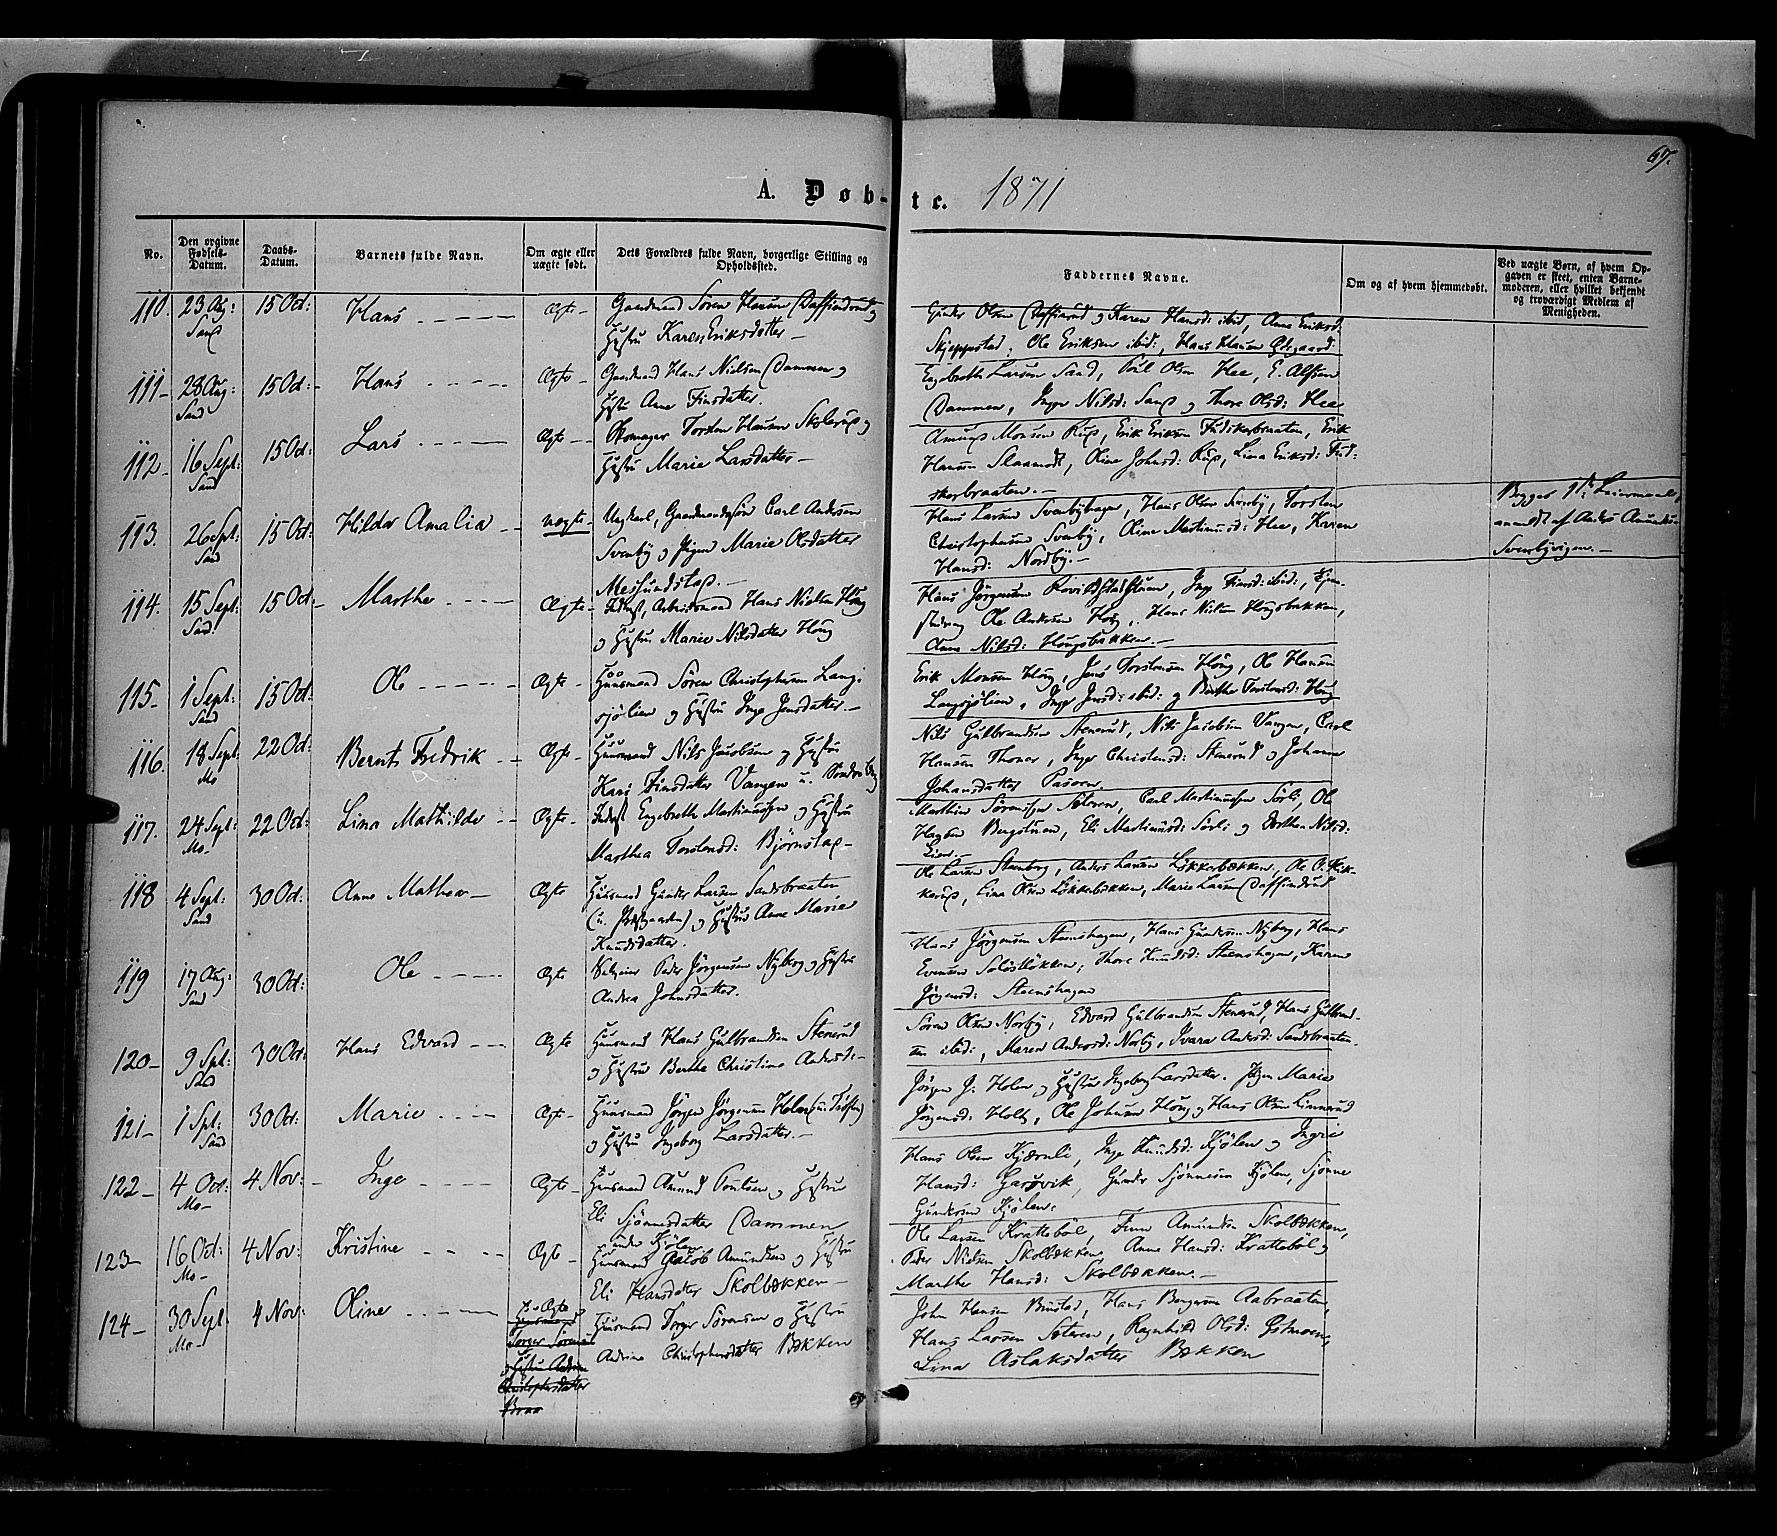 67.
A. Døb-te. 1871
No.
Den opgivne Fødsels-Datum.
Daabs-Datum.
Barnets fulde Navn.
Om ægte eller uægte født.
Dets Forældres fulde Navn, borgerlige Stilling og Opholdssted.
Faddernes Navne.
Om og af hvem hjemmedøbt.
Ved uægte Børn, af hvem Opgaven er skeet, enten Barnemoderen, eller hvilket bekjendt og troværdigt Medlem af Menigheden.
110. 23 Aug: 15 Oct: Hans Ægte Gaardmand Sören Hansen og
Hustru Karen Eriksdatter
Gunder Olsen og Karen Hansd: ibid, Anne Eriksd:
Skjeppestad, Ole Eriksen ibid:, Hans Hansen Ødegaard
111 28 Aug: Sand 15 Oct: Hans Ægte Gaardmand Hans Nielsen Dammen og
Hustru Anne Finsdatter.
Engebreth Larsen Sand, Poul Olsen Hee, E. Alfsen
Dammen, Inger Nilsd: og Thore Olsd: Hee
112 16 Sept: Sand 15 Oct: Lars Ægte Skomager Torsten Hansen og
Hustru Marie Larsdatter
Amund Monsen, Erik Eriksen, Erik
Hansen, Oline Johnsd:, Lina Eriksd:
113. 26 Sept: Sand 15 Oct: Hilda Amalia uægte Ungkarl, Gaardmandssön Carl Andersen
Svenby og Pigen Marie Olsdatter
Messundstap.
Hans Larsen Svenbyhagen, Hans Olsen Svenby, Torsten
Christophersen Svenby, Oline Martinusd: Hee, Karen
Hansd: Nordby.
Begges 1ste Leiermaal,
anmeldt af Anders Amundsen
Svenbyvigen.
114. 15 Sept: Sand 15 Oct: Marthe Ægte Inderst, Arbeidsmand Hans Nielsen Houg
og Hustru Marie Nilsdatter Houg
Hans Jörgensen, Inge Finsd: ibid:,
Ole Andersen Houg, Hans Nielsen Hougsbakken,
Anne Nilsd: Hougsbakken.
115 1 Sept: Sand 15 Oct: Ole Ægte Huusmand Sören Christophersen Lang-
sjölien og Hustru Inge Jensdatter.
Erik Monsen Houg, Jens Torstensen Houg, Ole Hansen
Langsjölien, Inger Jensd: ibid: og Berthe Torstensd: Houg
116. 18 Sept: Mo 22 Oct: Bernt Fredrik Ægte Huusmand Nils Jacobsen og Hustru
Kari Finsdatter Vangen u.
Nils Gulbrandsen Stenerud, Nils Jacobsen Vangen, Carl
Hansen Thoner, Inger Christensd: Stenerud og Johanne
Johansdatter
117. 24 Sept: Mo 22 Oct: Lina Mathilde Ægte Inderst Engebreth Martinussen og Hustru
Marthea Torstensd: Björnstap
Marthin Sörensen Seteren, Carl Martinussen Sörli, Ole
Hagben Bergstuen, Eli Martinusd: Sörli og Dorthea Nilsd:
Lien.
118 4 Sept: Sand 30 Oct: Anne Mathea Ægte Huusmand Gunder Larsen Sandsbraaten
(u. Præstgaarden) og Hustru Anne Marie
Knudsdatter.
Ole Larsen Stenberg, Anders Larsen Lökkebækken, Ole O.
Lina Olsen Lökkebækken, Marie Larsen
119 17 Aug: Sand 30 Oct: Ole Ægte Selveier Peder Jörgensen Nyberg og Hustru
Andrea Johnsdatter.
Hans Jörgensen Steenshagen, Hans Gundersen Nyberg, Hans
Evensen, Thore Knudsd: Steenshagen, Karen
Jörgensd: Steenshagen
120 9 Sept: Sand 30 Oct: Hans Edvard Ægte Huusmand Hans Gulbrandsen Stenerud
og Hustru Berthe Christine Andersd:
Sören Olsen Norby, Edvard Gulbrandsen Stenerud, Hans Gulbrand-
sen ibid:, Maren Andersd: Norby, Ivara Andersd: Sandsbraaten.
121 1 Spt: Sand 30 Oct: Marie Ægte Huusmand Jörgen Jörgensen Holen
og Hustru Ingeborg Larsdatter.
Jörgen J: Holen og Hustru Ingeborg Larsdatter. Pigen Marie
Jörgensd: Holt, Ole Johnsen Houg og Hans Olsen Linnerud
122 4 Oct: Mo 4 Nov: Inge Ægte Huusmand Amund Poulsen og Hustru
Eli Sjönnesdatter Dammen
under Kjölen
Hans Olsen Kjærnli, Inge Knudsd: Kjölen og Ingrie
Hansd: Garsvik, Gunder Sjönnesen Kjölen, Sjönne
Gundersen Kjölen.
123 16 Oct: Mo 4 Nov: Kristine Ægte Huusmand Jacob Amundsen og Hustru
Eli Hansdatter Skolbækken
Ole Larsen Krattebøl, Finn Amundsen Skolbækken,
Peder Nielsen Skolbækken, Anne Hansd: Krattebøl og
Marthe Hansd: Skolbækken.
124 30 Sept Mo 4 Nov: Oline Ægte
Huusmand
Torger Sörensen
og Hustru Andrine
Christophersdatter
Huusmand Torger Sörensen og Hustru
Andrine Christophersdatter Bækken
John Hansen, Hans Bergersen Aabraaten,
Hans Larsen Seteren, Ragnhild Olsd: Østmoen,
Lina Aslaksdatter Bækken